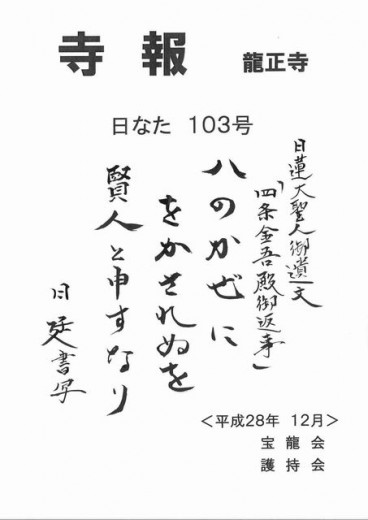 寺報 龍正寺
日なた 103号
日蓮大聖人御遺文
「四条金吾殿御返事」
八のかぜに
をかされぬを
賢人と申すなり
日廷書写
＜平成28年 12月＞
宝龍会
護持会